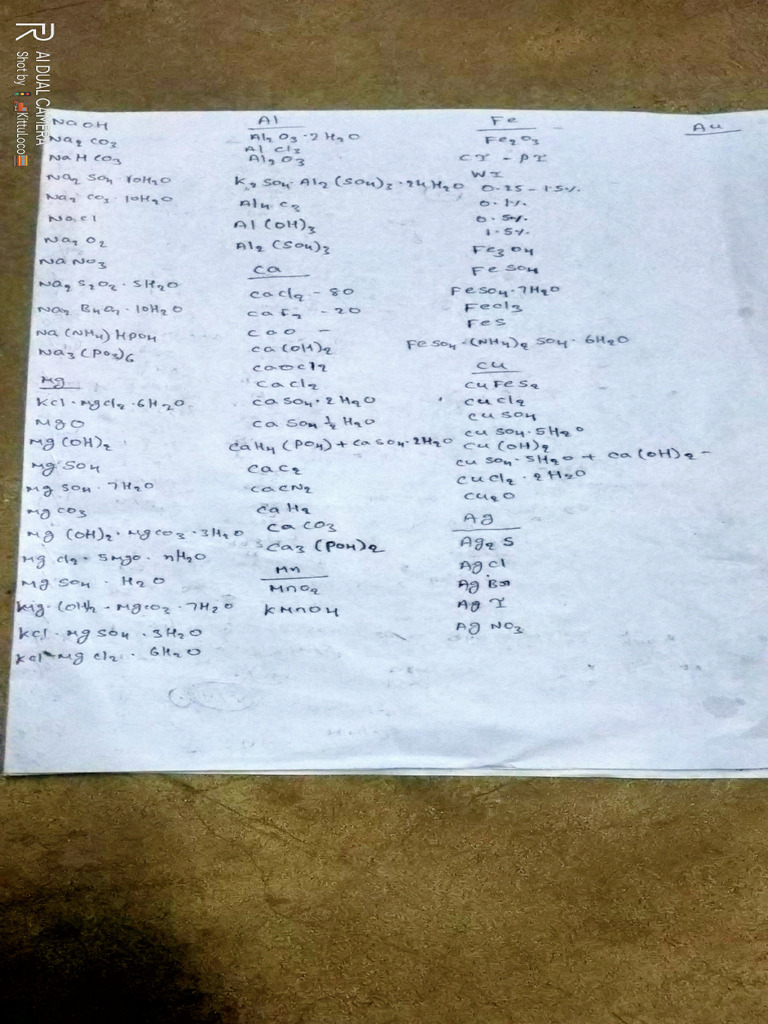 AI DUAL CAMERA
Shot by KittuLoco
NaOH
Na2 CO3
NaHCO3
Na2 SO4 10H2O
Na2 CO3 10H2O
NaCl
Na2 O2
NaNO3
Na2 S2O2 · 5H2O
Na2 B4O7 · 10H2O
Na(NH4)HPO4
Na3(PO3)6
Mg
KCl · MgCl2 · 6H2O
MgO
Mg(OH)2
MgSO4
MgSO4 · 7H2O
MgCO3
Mg (OH)2 · MgCO3 · 3H2O
Mg Cl2 · 5MgO · nH2O
MgSO4 · H2O
Mg · (OH)2 · MgCO3 · 7H2O
KCl · MgSO4 · 3H2O
KCl MgCl2 · 6H2O
Al
Al2O3 · 2H2O
AlCl3
Al2O3
K2SO4 · Al2(SO4)3 · 24H2O
Al4C3
Al(OH)3
Al2(SO4)3
Ca
CaCl2 - 80
CaF2 - 20
CaO -
Ca(OH)2
CaOCl2
CaCl2
CaSO4 · 2H2O
CaSO4 ½ H2O
CaH4(PO4) + CaSO4 · 2H2O
CaC2
CaCN2
CaH2
CaCO3
Ca3(PO4)2
Mn
MnO2
KMnO4
Fe
Fe2O3
CI - PI
WI
0.25 - 1.5%
0.1%
0.5%
1.5%
Fe3O4
FeSO4
FeSO4 · 7H2O
FeCl3
FeS
FeSO4 · (NH4)2 SO4 · 6H2O
Cu
CuFeS2
CuCl2
CuSO4
CuSO4 · 5H2O
Cu(OH)2
CuSO4 · 5H2O + Ca(OH)2 -
CuCl2 · 2H2O
Cu2O
Ag
Ag2S
AgCl
AgBr
AgI
AgNO3
Au